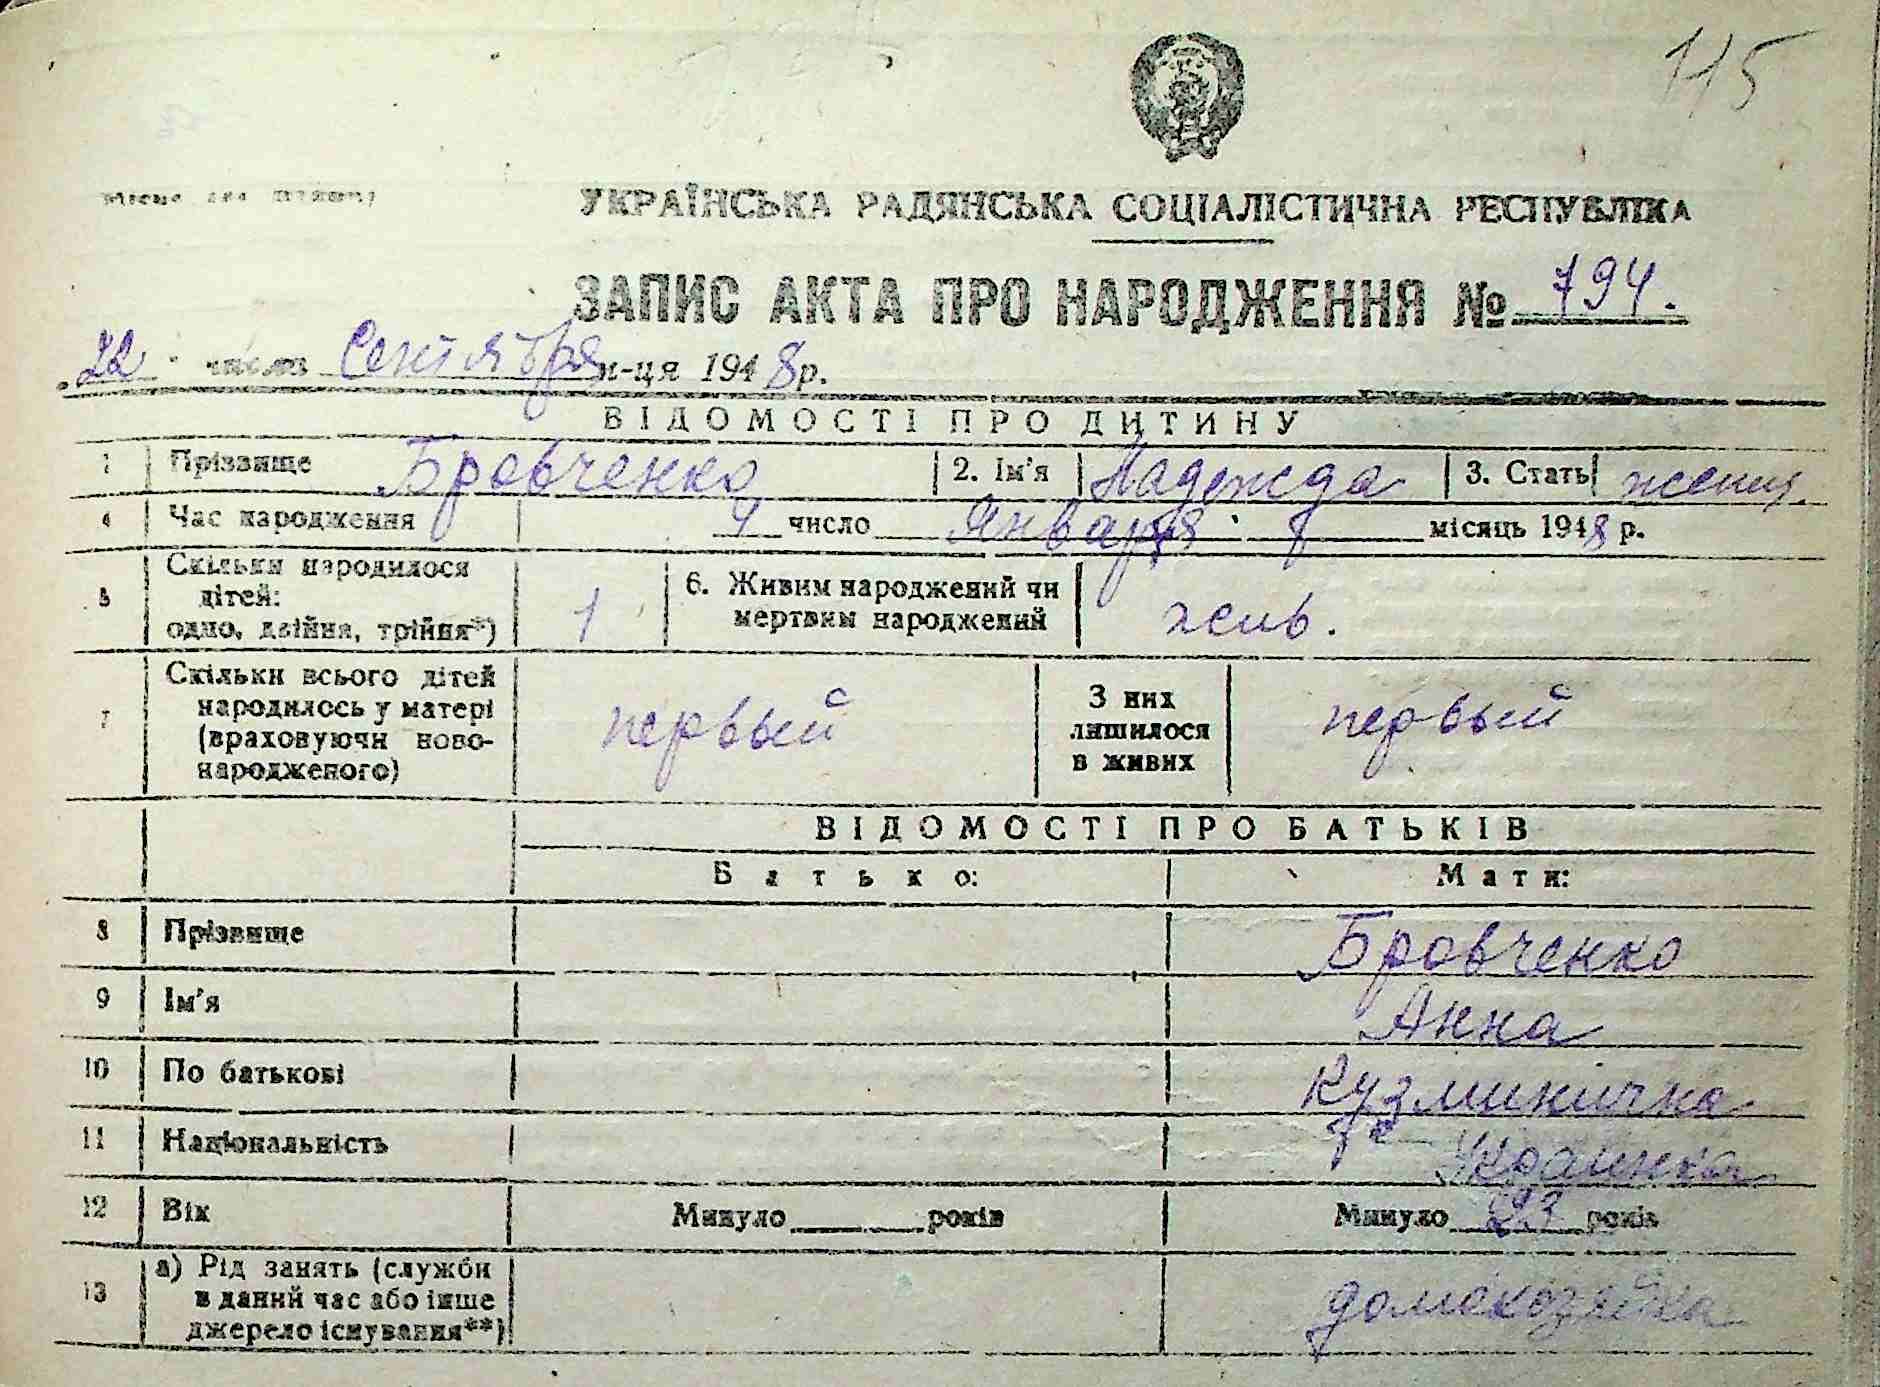 115
Місце для штампу
УКРАЇНСЬКА РАДЯНСЬКА СОЦІАЛІСТИЧНА РЕСПУБЛІКА
ЗАПИС АКТА ПРО НАРОДЖЕННЯ № 794.
22 числа Сентября м-ця 1948 р.
ВІДОМОСТІ ПРО ДИТИНУ
1 Прізвище Бровченко 2. Ім'я Надежда 3. Стать женщ.
4 Час народження 9 число Января місяць 1948 р.
5 Скільки народилося
дітей:
одно, двійня, трійня*) 1 6. Живим народжений чи
мертвим народжений жив.
7 Скільки всього дітей
народилось у матері
(враховуючи ново-
народженого) первый З них
лишилося
в живих первый
ВІДОМОСТІ ПРО БАТЬКІВ
Батько: Мати:
8 Прізвище Бровченко
9 Ім'я Анна
10 По батькові Кузминична
11 Національність Украинка
12 Вік Минуло років Минуло 23 років
13 а) Рід занять (служби
в даний час або інше
джерело існування**) домохозяйка